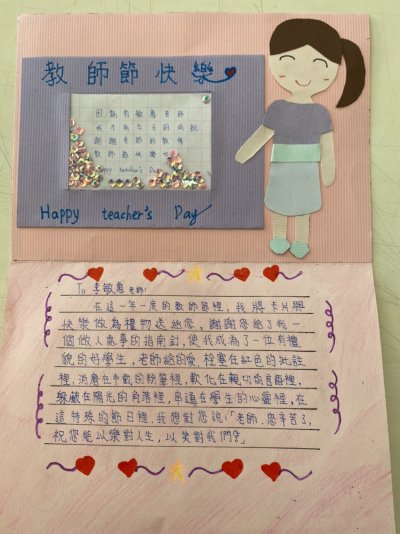 教師節快樂
因為有敏惠老師
我才有今天的成就
謝謝老師的教導
教師節快樂
Happy teacher's Day
Happy teacher's Day
To 李敏惠 老師:
在這一年一度的教師節裡,我將卡片與
快樂做為禮物送給您,謝謝您給了我一
個做人處事的指南針,使我成為了一位有禮
貌的好學生,老師給的愛,栓塞在紅色的批註
裡,消磨在手勤的粉筆裡,軟化在親切的言語裡,
躲藏在陽光的角落裡,串通在學生的心靈裡,在
這特殊的節日裡,我想對您說:「老師,您辛苦了,
祝您能以樂對人生,以笑對我們?」